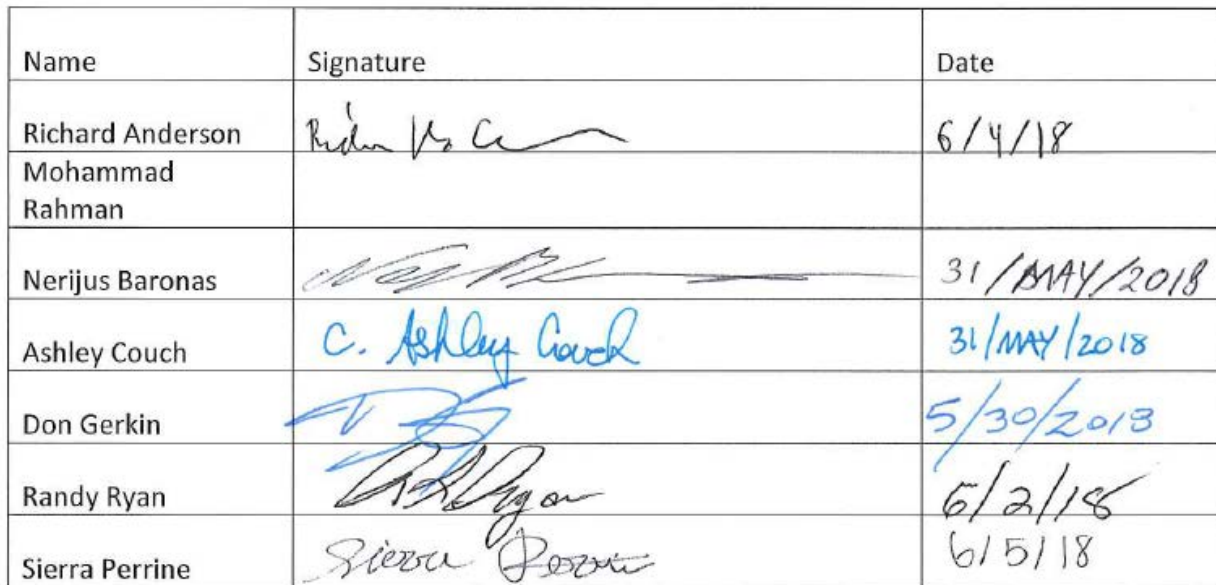 Name Signature Date
Richard Anderson 6/4/18
Mohammad
Rahman
Nerijus Baronas 31/MAY/2018
Ashley Couch C. Ashley Couch 31/MAY/2018
Don Gerkin 5/30/2018
Randy Ryan 6/2/18
Sierra Perrine Sierra Perrine 6/5/18